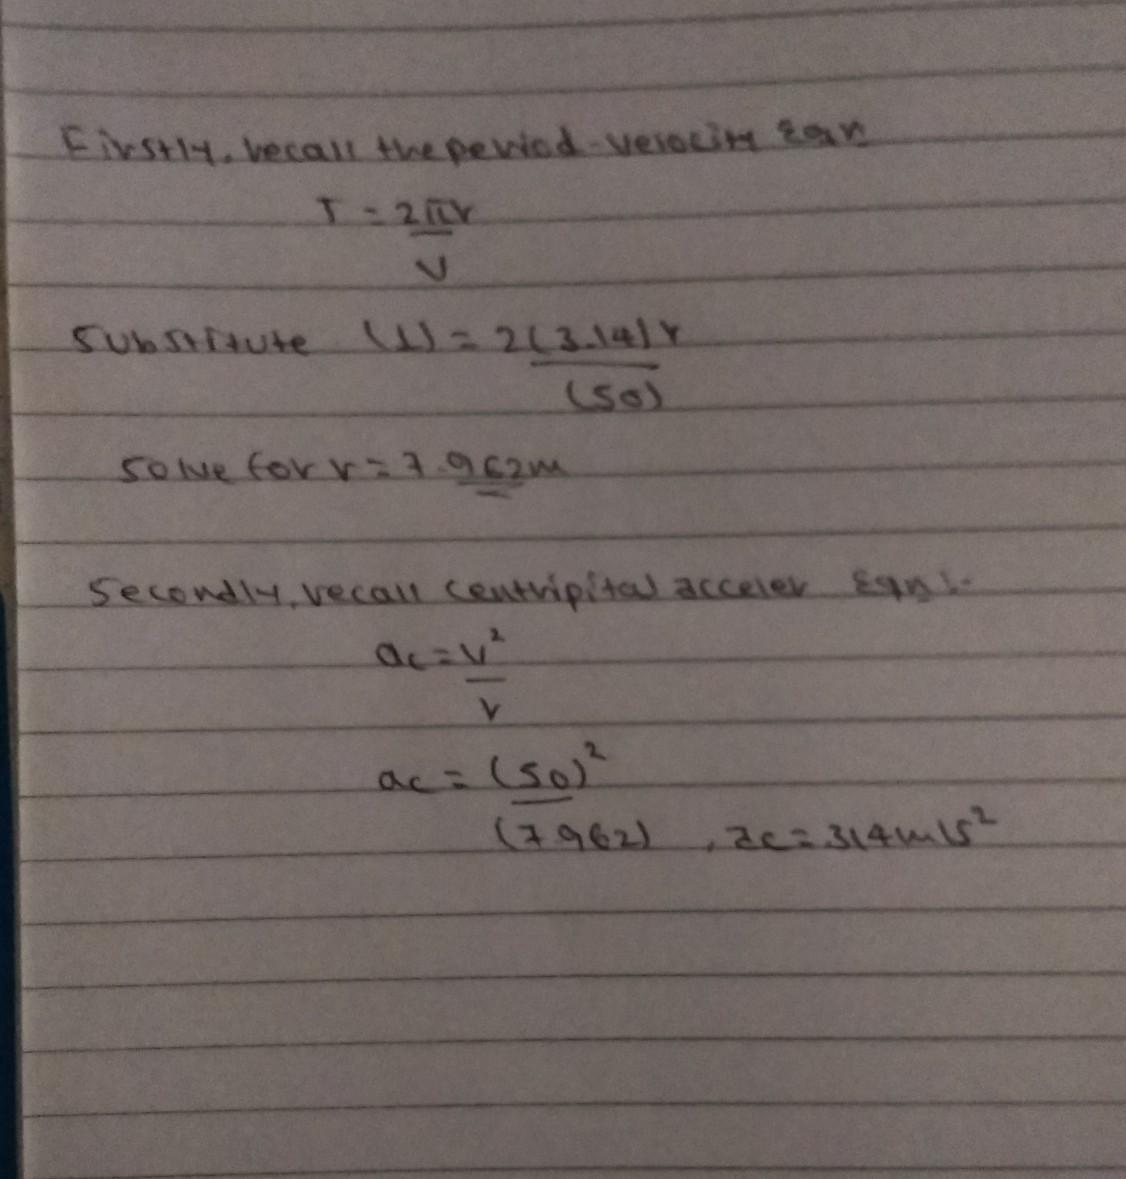 Firstly, recall the period-velocity Eqn
T = 2πr
v
Substitute (1) = 2(3.14)r
(50)
Solve for r = 7.962m
Secondly, recall centripital acceler Eqn:-
ac = v²
r
ac = (50)²
(7.962) , ac = 314m/s²